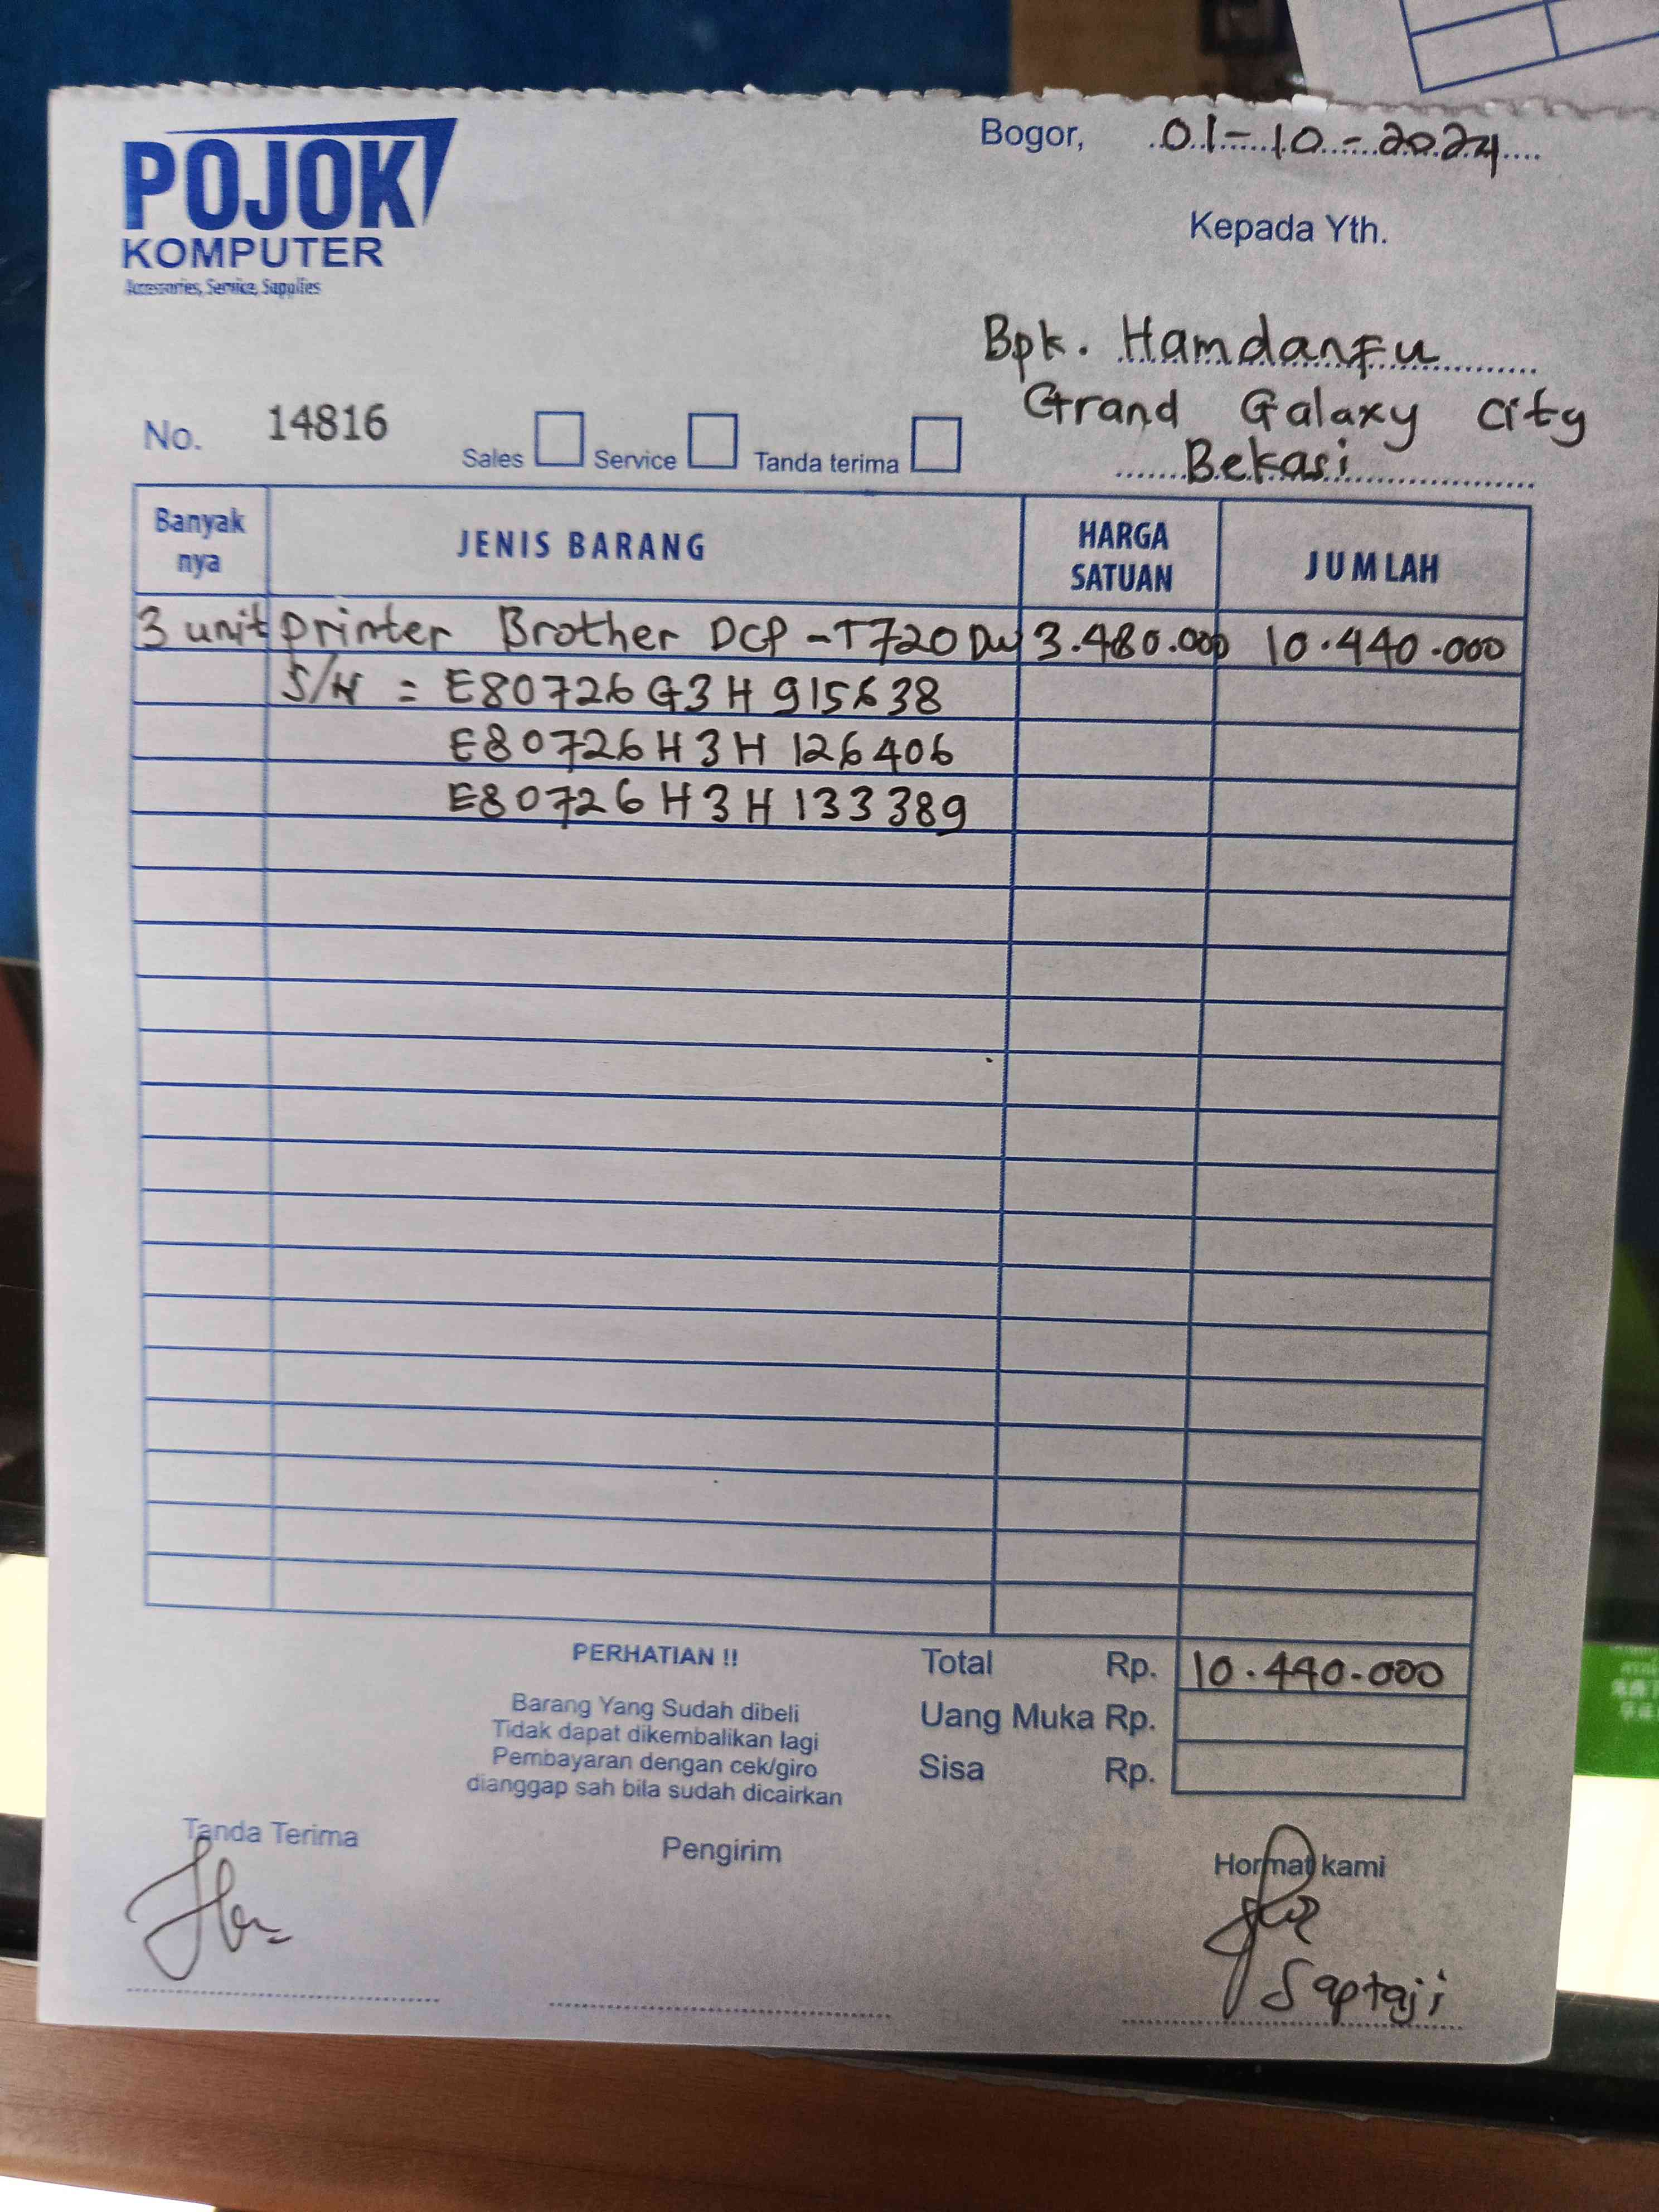 POJOK
KOMPUTER
Accessories, Service, Supplies
Bogor, 01-10-2024
Kepada Yth.
Bpk. Hamdanfu
Grand Galaxy City
Bekasi
No. 14816 Sales Service Tanda terima
Banyak nya JENIS BARANG HARGA SATUAN JUMLAH
3 unit printer Brother DCP-T720DW 3.480.000 10.440.000
S/N = E80726G3H915638
E80726H3H126406
E80726H3H133389
PERHATIAN !!
Barang Yang Sudah dibeli
Tidak dapat dikembalikan lagi
Pembayaran dengan cek/giro
dianggap sah bila sudah dicairkan
Total Rp. 10.440.000
Uang Muka Rp.
Sisa Rp.
Tanda Terima
Pengirim
Hormat kami
Saptaji